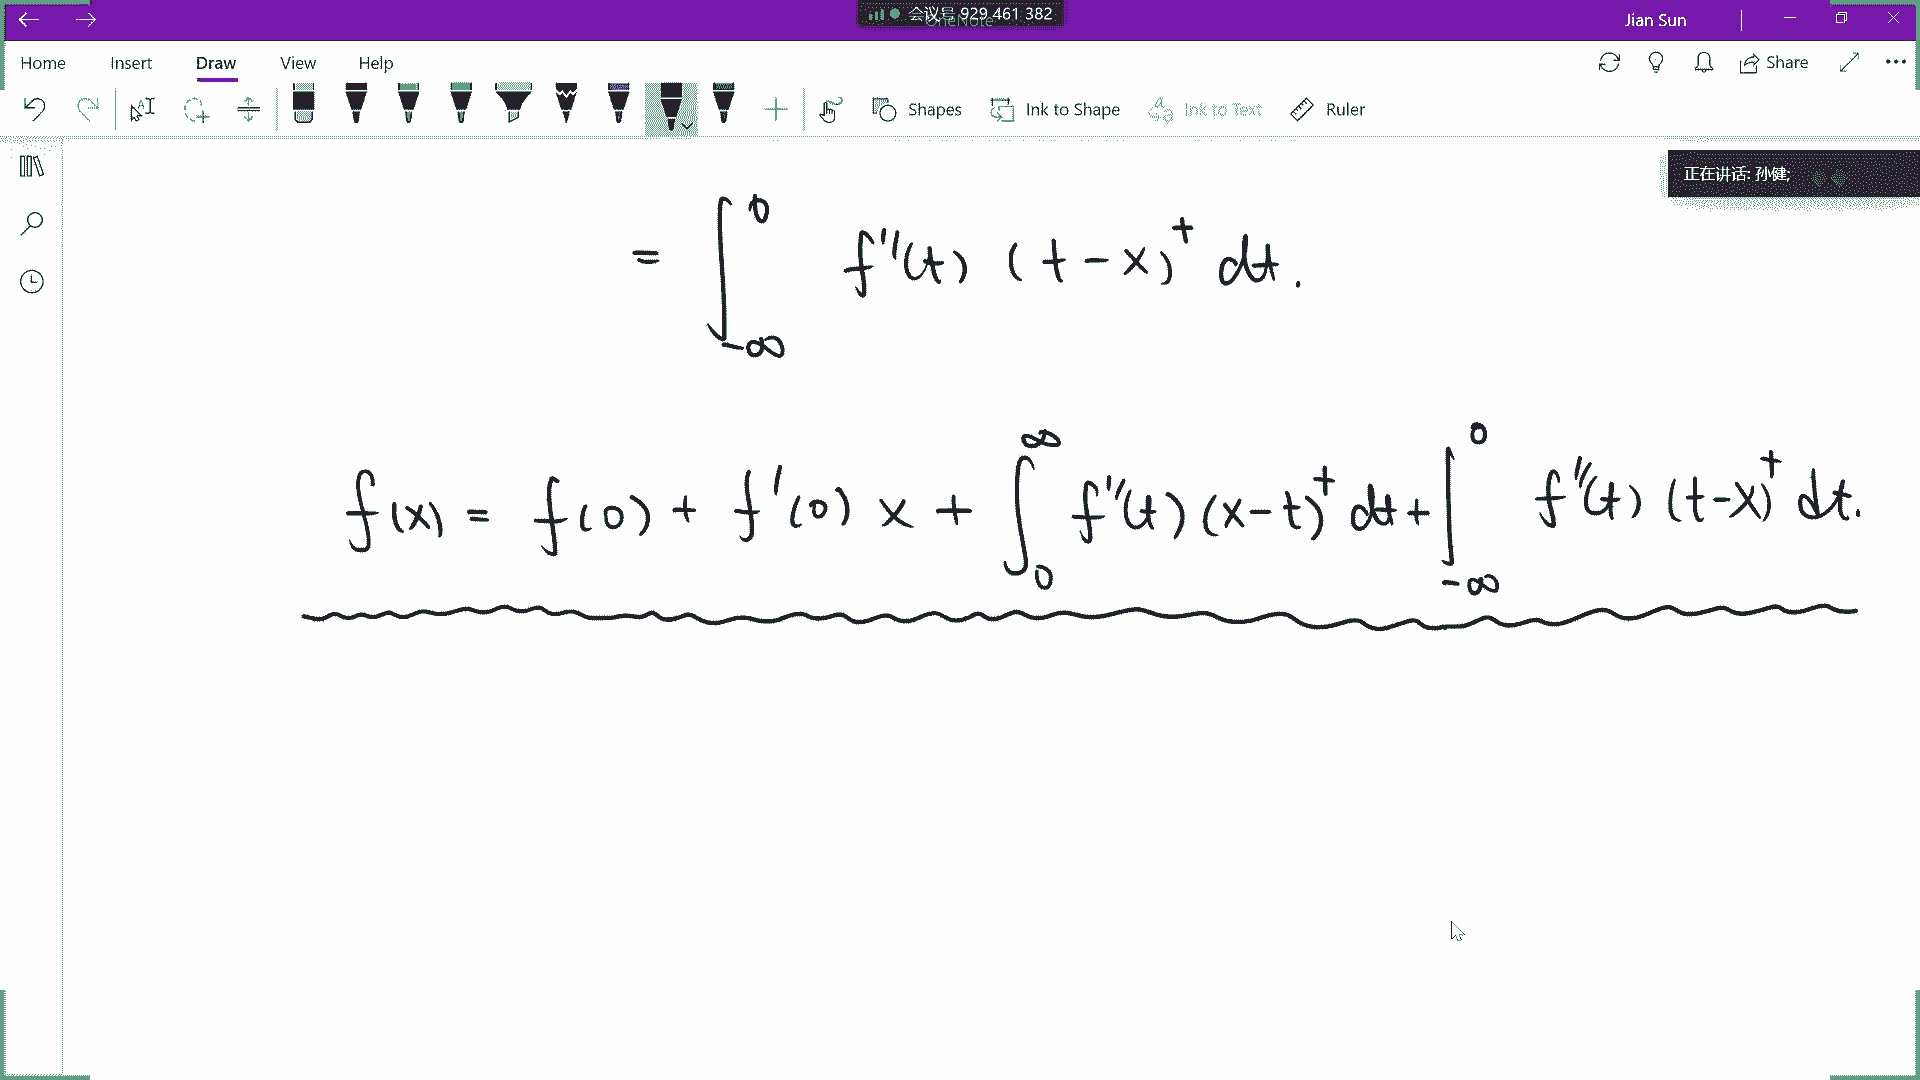 会议号 929 461 382
OneNote
Jian Sun
Home Insert Draw View Help
Share
Shapes Ink to Shape Ink to Text Ruler
正在讲话: 孙健;
= ∫_{-∞}^{0} f''(t) (t-x)^+ dt.
f(x) = f(0) + f'(0) x + ∫_{0}^{∞} f''(t) (x-t)^+ dt + ∫_{-∞}^{0} f''(t) (t-x)^+ dt.